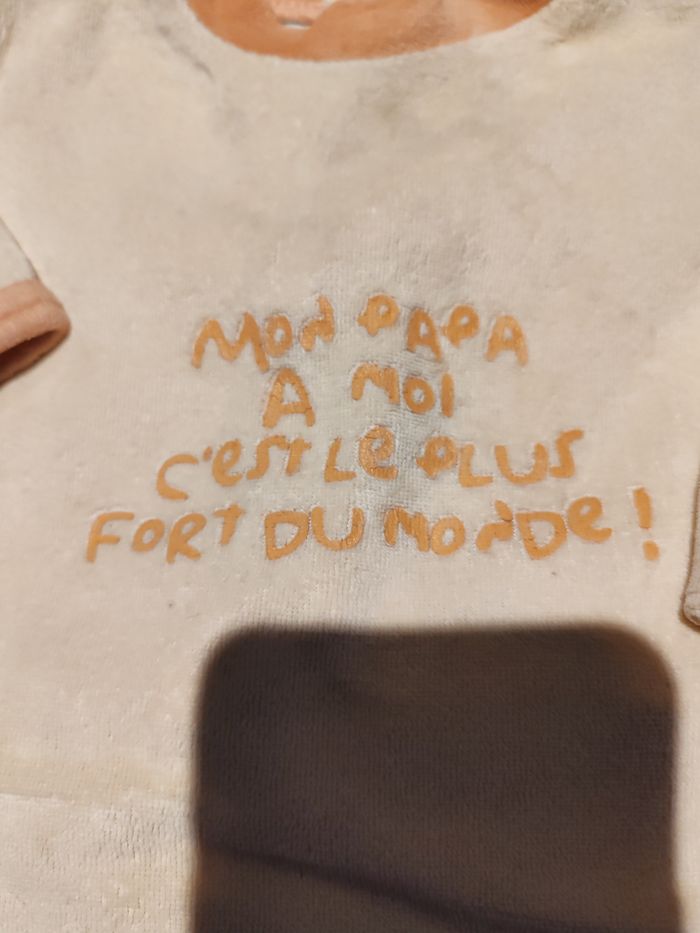 MON PAPA
A MOI
C'EST LE PLUS
FORT DU MONDE !